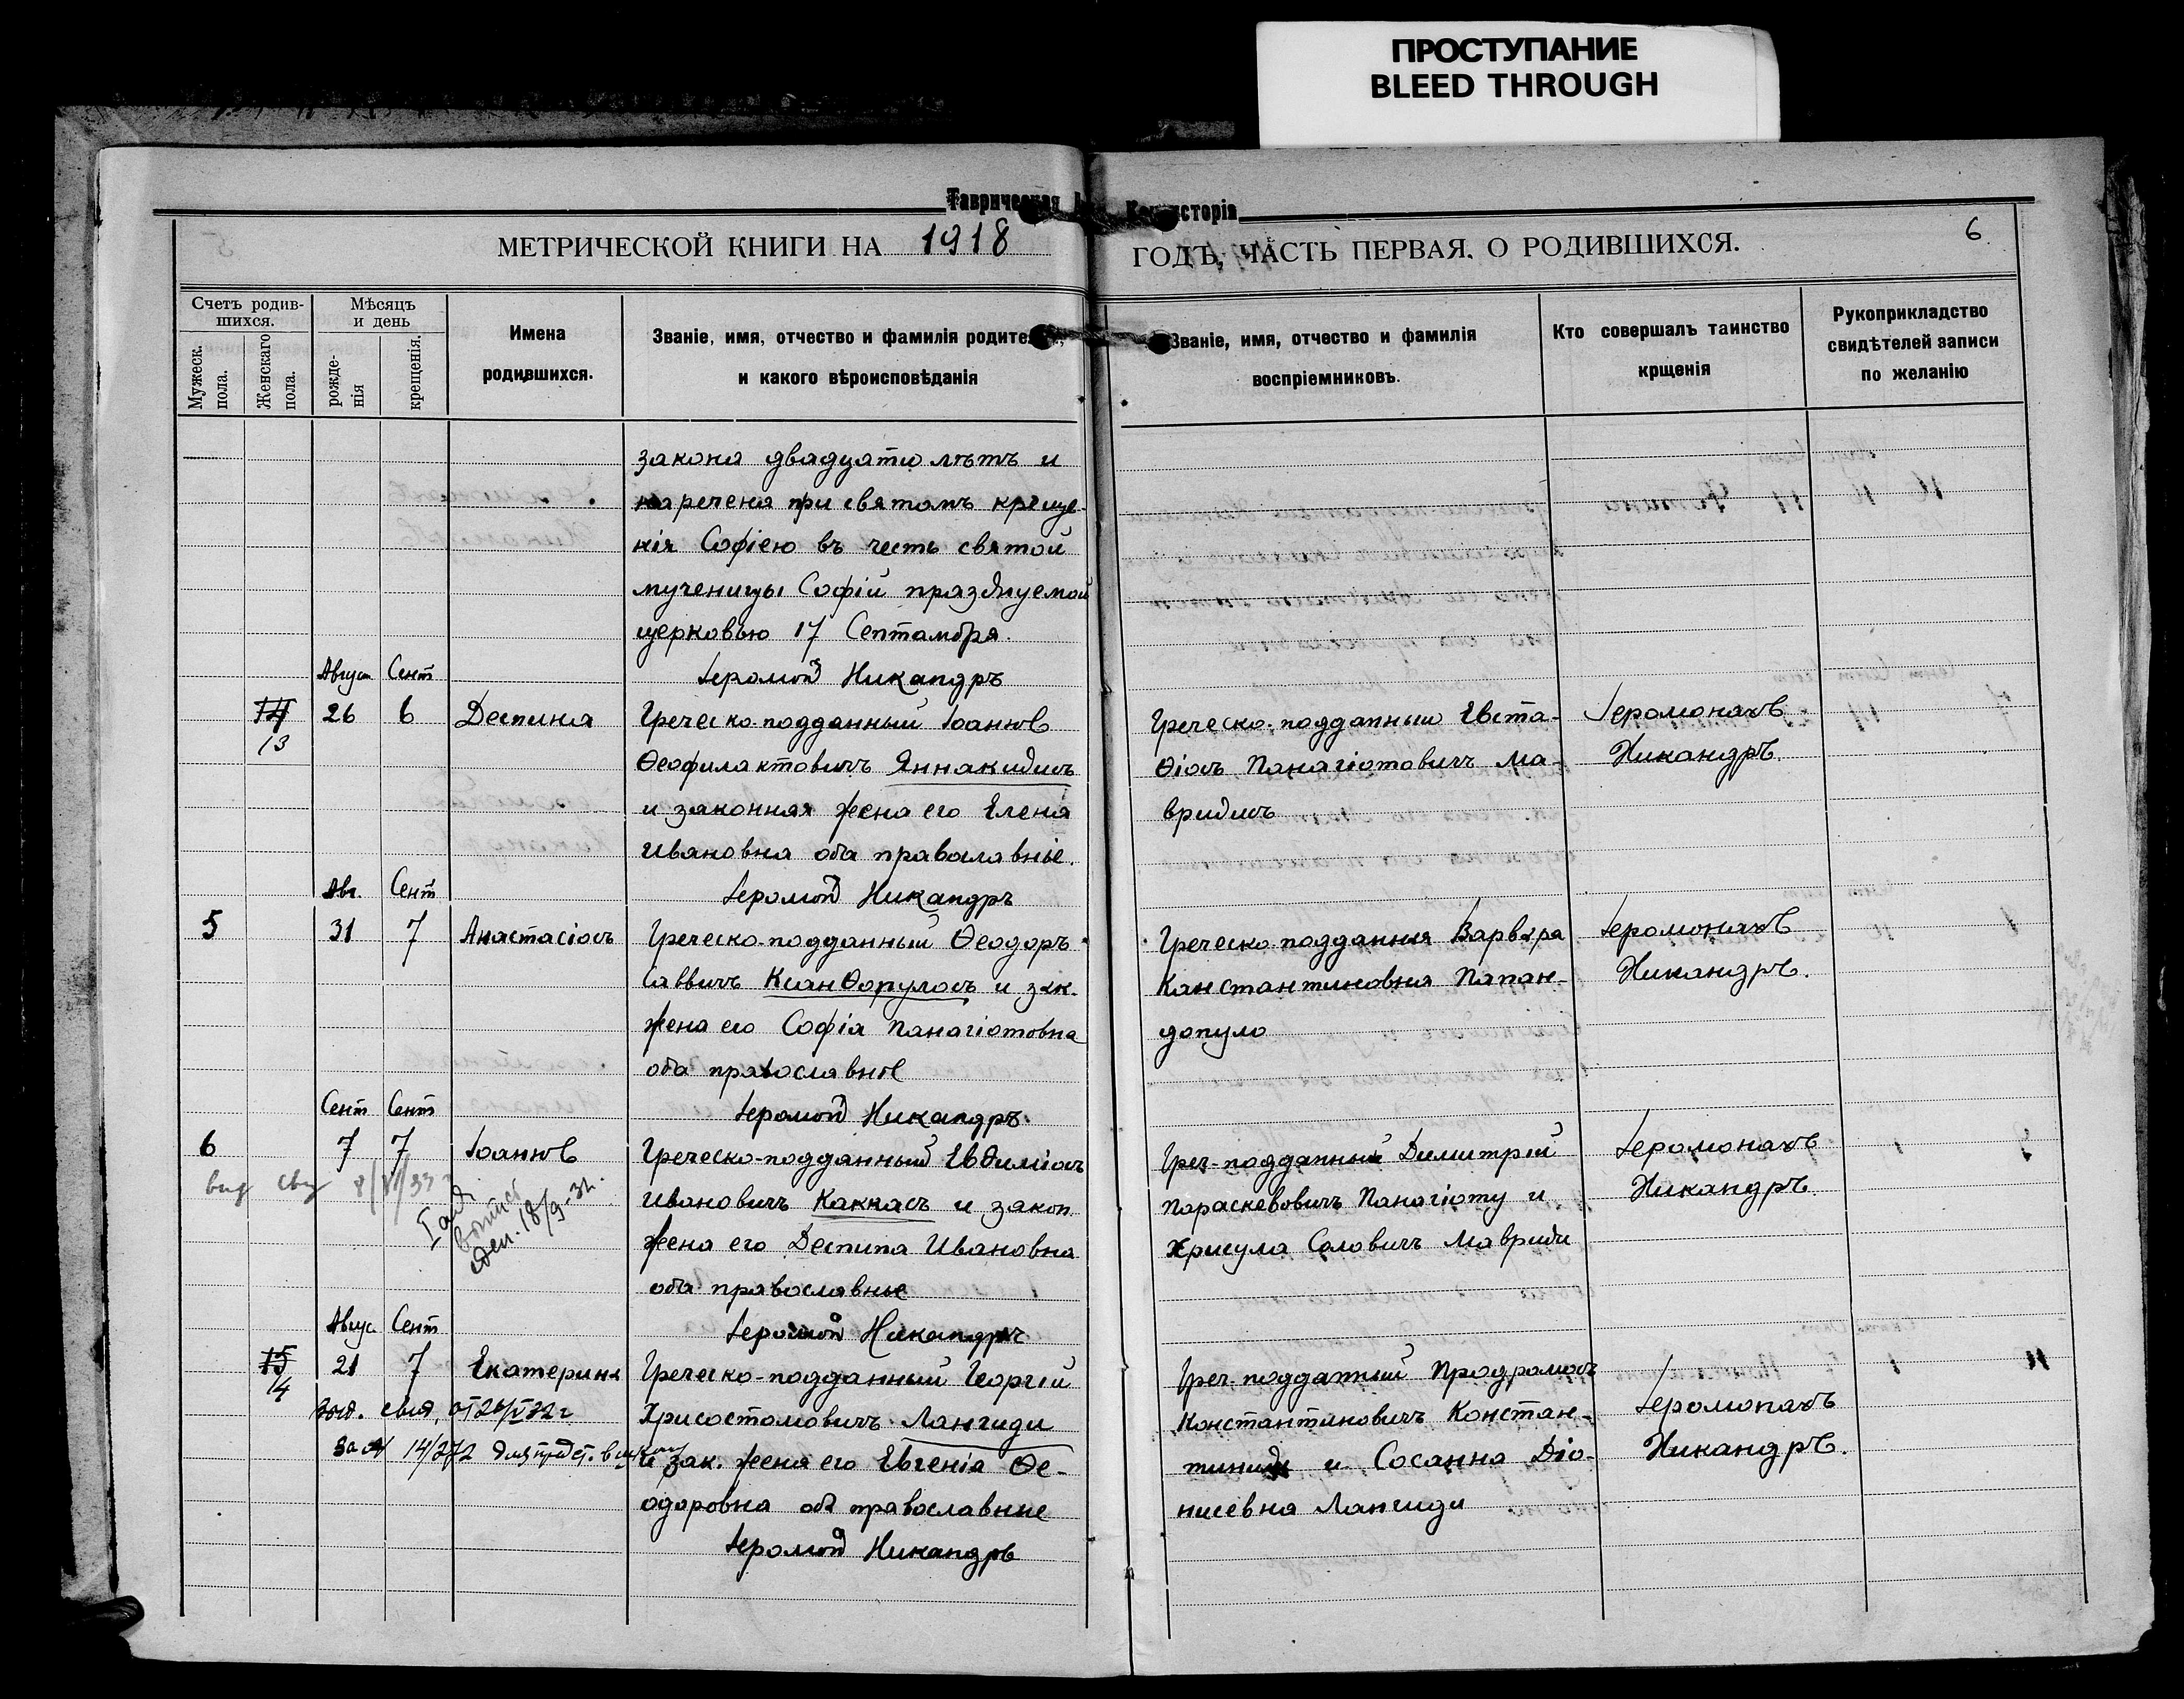 ПРОСТУПАНИЕ
BLEED THROUGH
Таврическая
Консисторія
МЕТРИЧЕСКОЙ КНИГИ НА 1918
ГОДЪ, ЧАСТЬ ПЕРВАЯ. О РОДИВШИХСЯ.
6
Счетъ родив-
шихся.
Мужеск.
пола.
Женскаго
пола.
Мѣсяцъ
и день
рожде-
нія
крещенія.
Имена
родившихся.
Званіе, имя, отчество и фамилія родителей,
и какого вѣроисповѣданія
Званіе, имя, отчество и фамилія
воспріемниковъ.
Кто совершалъ таинство
крщенія
Рукоприкладство
свидѣтелей записи
по желанію
закона двадцати лѣтъ и
наречена при святомъ креще-
нія Софіею въ честь святой
мученицы Софій празднуемой
церковью 17 Септамбря.
Іеромон Никандръ
Август Сент
14
13
26 6 Деспина
Греческо-подданный Іоаннъ
Ѳеофилактовичъ Яннакидисъ
и законная жена его Елена
Ивановна оба православніе.
Іеромон Никандръ
Греческо-подданный Евста-
ѳіосъ Панагіотовичъ Ма-
вридисъ
Іеромонахъ
Никандръ.
Авг. Сент
5 31 7 Анастасіосъ
Греческо-подданный Ѳеодоръ
Саввичъ Ксанѳопулосъ и зак.
жена его Софія Панагіотовна
оба православніе
Іеромон Никандръ.
Греческо подданная Варвара
Канстантиновна Папан-
допуло
Іеромонахъ
Никандръ.
Сент Сент
6 7 7 Іоаннъ
выд свид 8/VI/33
18/9-32.
Греческо-подданный Евѳиміосъ
Ивановичъ Каккасъ и закон
жена его Деспина Ивановна
оба православные
Іеромон Никандръ
Греч-подданный Димитрій
Параскевовичъ Панагіоту и
Хрисула Соловичъ Мавриди
Іеромонахъ
Никандръ
Авгус. Сент
15
14
21 7 Екатерина
свид, от 26/V 32 г
За № 14/272
Греческо-подданный Георгій
Хрисостомовичъ Лангиди
и зак. жена его Евгенія Ѳе-
одоровна оба православные
Іеромон Никандръ
Греч-подданный Продромосъ
Константиновичъ Констан-
тиниди и Сосанна Діо-
нисевна Лангиди
Іеромонахъ
Никандръ.